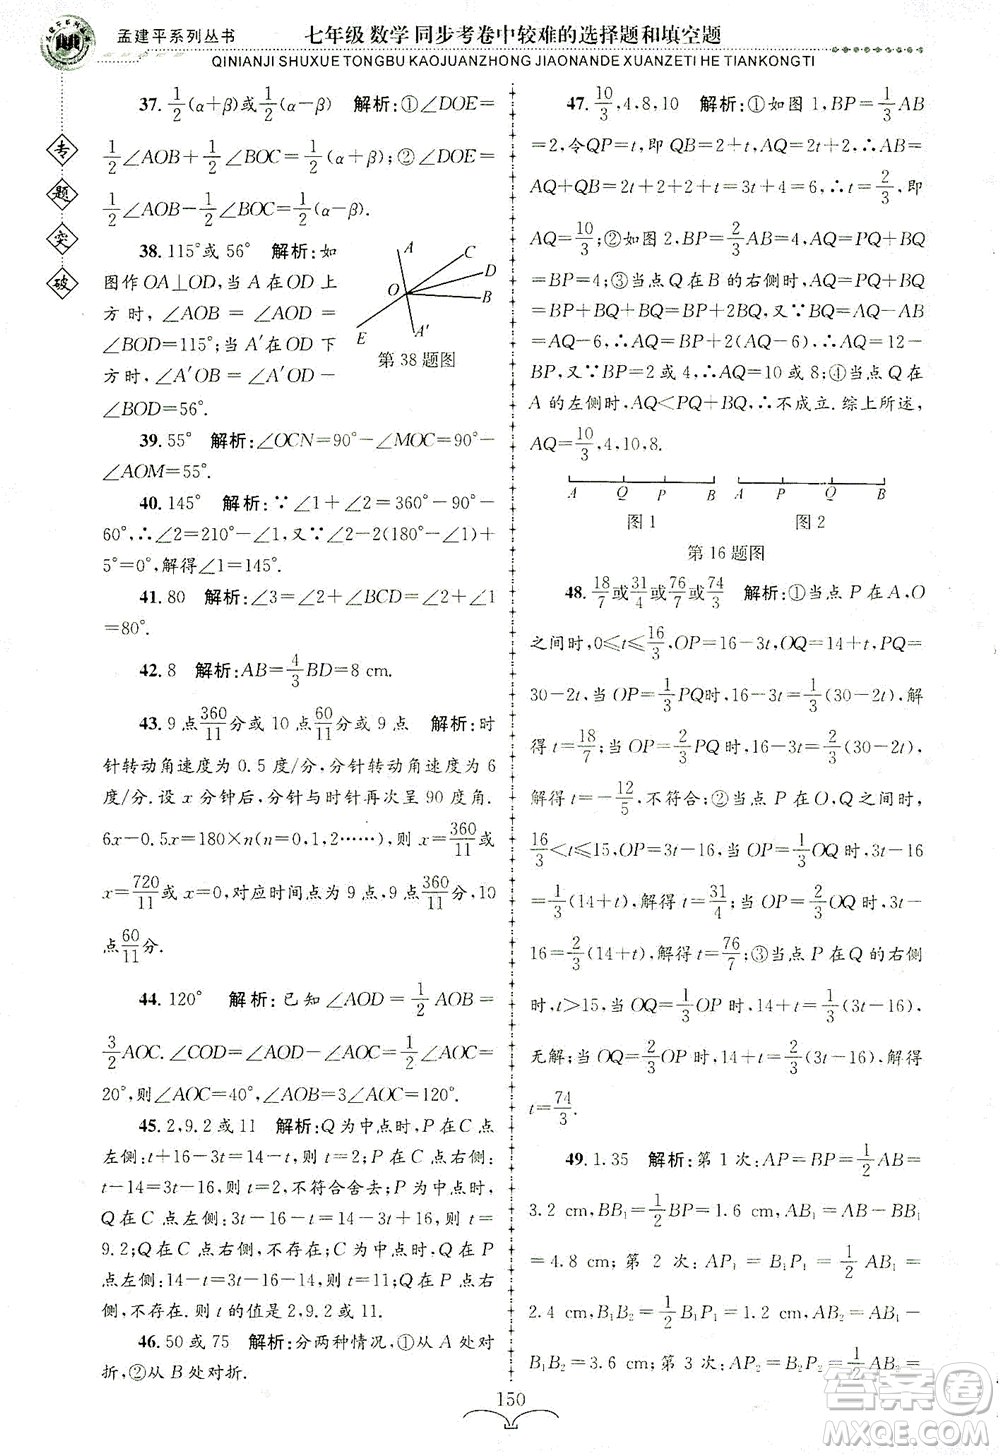 孟建平系列丛书
七年级 数学 同步考卷中较难的选择题和填空题
QINIANJI SHUXUE TONGBU KAOJUANZHONG JIAONANDE XUANZETI HE TIANKONGTI
专
题
突
破
37. 1/2(α+β)或1/2(α−β) 解析:①∠DOE=
1/2∠AOB+1/2∠BOC=1/2(α+β);②∠DOE=
1/2∠AOB−1/2∠BOC=1/2(α−β).
38. 115°或 56° 解析:如
图作OA⊥OD,当 A 在OD 上
方 时,∠AOB = ∠AOD +
∠BOD=115°;当 A′在OD下
方时,∠A′OB = ∠A′OD −
∠BOD=56°.
A
C
D
O
B
E
A′
第 38 题图
39. 55° 解析:∠OCN=90°−∠MOC=90°−
∠AOM=55°.
40. 145° 解析:∵∠1+∠2=360°−90°−
60°,∴∠2=210°−∠1,又∵∠2−2(180°−∠1)+
5°=0°,解得∠1=145°.
41. 80 解析:∠3=∠2+∠BCD=∠2+∠1
=80°.
42. 8 解析:AB=4/3BD=8 cm.
43. 9 点360/11分或 10 点60/11分或 9 点 解析:时
针转动角速度为 0.5 度/分,分针转动角速度为 6
度/分.设 x 分钟后,分针与时针再次呈 90 度角.
6x−0.5x=180×n(n=0,1,2……),则 x=360/11或
x=720/11或 x=0,对应时间点为 9 点360/11分,9 点,10
点60/11分.
44. 120° 解析:已知∠AOD=1/2AOB=
3/2AOC.∠COD=∠AOD−∠AOC=1/2∠AOC=
20°,则∠AOC=40°,∠AOB=3∠AOC=120°.
45. 2,9.2或 11 解析:Q为中点时,P 在C 点
左侧:t+16−3t=14−t,则 t=2;P 为中点时,Q 在C
点左侧:3t−16=14−t−(3t−16),则 t=9.2;P 在C点右侧:t
−14=3t−16,则 t=2,不符合舍去;P 为中点时,
Q在C 点左侧:3t−16=14−t−(3t−16),则 t=
9.2;Q在C 点右侧,不存在;Q为中点时,Q 在P
点左侧:14−t=3t−16−14,则 t=11;Q在P 点右
侧,不存在.则 t 的值是 2,9.2 或 11.
46. 50 或 75 解析:分两种情况,①从 A 处对
折,②从 B 处对折.
47. 10/3,4,8,10 解析:①如图 1,BP=1/3AB
=2,令QP=t,即QP=AQ=t,AQ+t+2,∴AB=
AQ+QP+BP=2t+t+2=3t+4=6,∴t=2/3,即
AQ=10/3;②如图 2,BP=2/3AB=4,∴AQ=PQ+
BP=BP=4;③当点 Q 在 B 的右侧时,AQ=PQ+
BP=BP+BQ+BQ=BP+2BQ,又∵BQ=AQ−AB
=AQ−6,∴AQ=BP+2(AQ−6),∴AQ=12−
BP,又∵BP=2或4,∴AQ=10或8;④当点 Q 在
A 的左侧时,AQ<PQ+BQ,∴不成立.综上所述,
AQ=10/3,4,10,8.
A Q P B A P Q B
图 1 图 2
第 16 题图
48. 18/7或31/4或76/7或74/3 解析:①当点 P 在A,O
之间时,0≤t≤16/3,OP=16−3t,OQ=14+t,PQ=
30−2t,当 OP=1/3PQ时,16−3t=1/3(30−2t),解
得 t=18/7;当OP=2/3PQ时,16−3t=2/3(30−2t),
解得 t=−12/5,不符合;②当点 P 在O,Q之间时,
16/3<t≤15,OP=3t−16,当 OP=1/3OQ时,3t−16
=1/3(14+t),解得 t=31/4;当 OP=2/3OQ时,3t−
16=2/3(14+t),解得 t=76/7;③当点 P 在 Q 的右侧
时,t>15,当 OQ=1/3OP时,14+t=1/3(3t−16),
无解;当 OQ=2/3OP时,14+t=2/3(3t−16),解得
t=74/3.
49. 1.35 解析:第 1 次:AP=BP=1/2AB=
3.2 cm,BB₁=1/2BP=1.6 cm,AB₁=AB−BB₁
=4.8 cm;第 2 次:AP₁=B₁P₁=1/2AB₁=
2.4 cm,B₁B₂=1/2B₁P₁=1.2 cm,AB₂=AB₁−
B₁B₂=3.6 cm;第 3 次:AP₂=B₂P₂=1/2AB₂=
150
答案圈
MXQE.COM